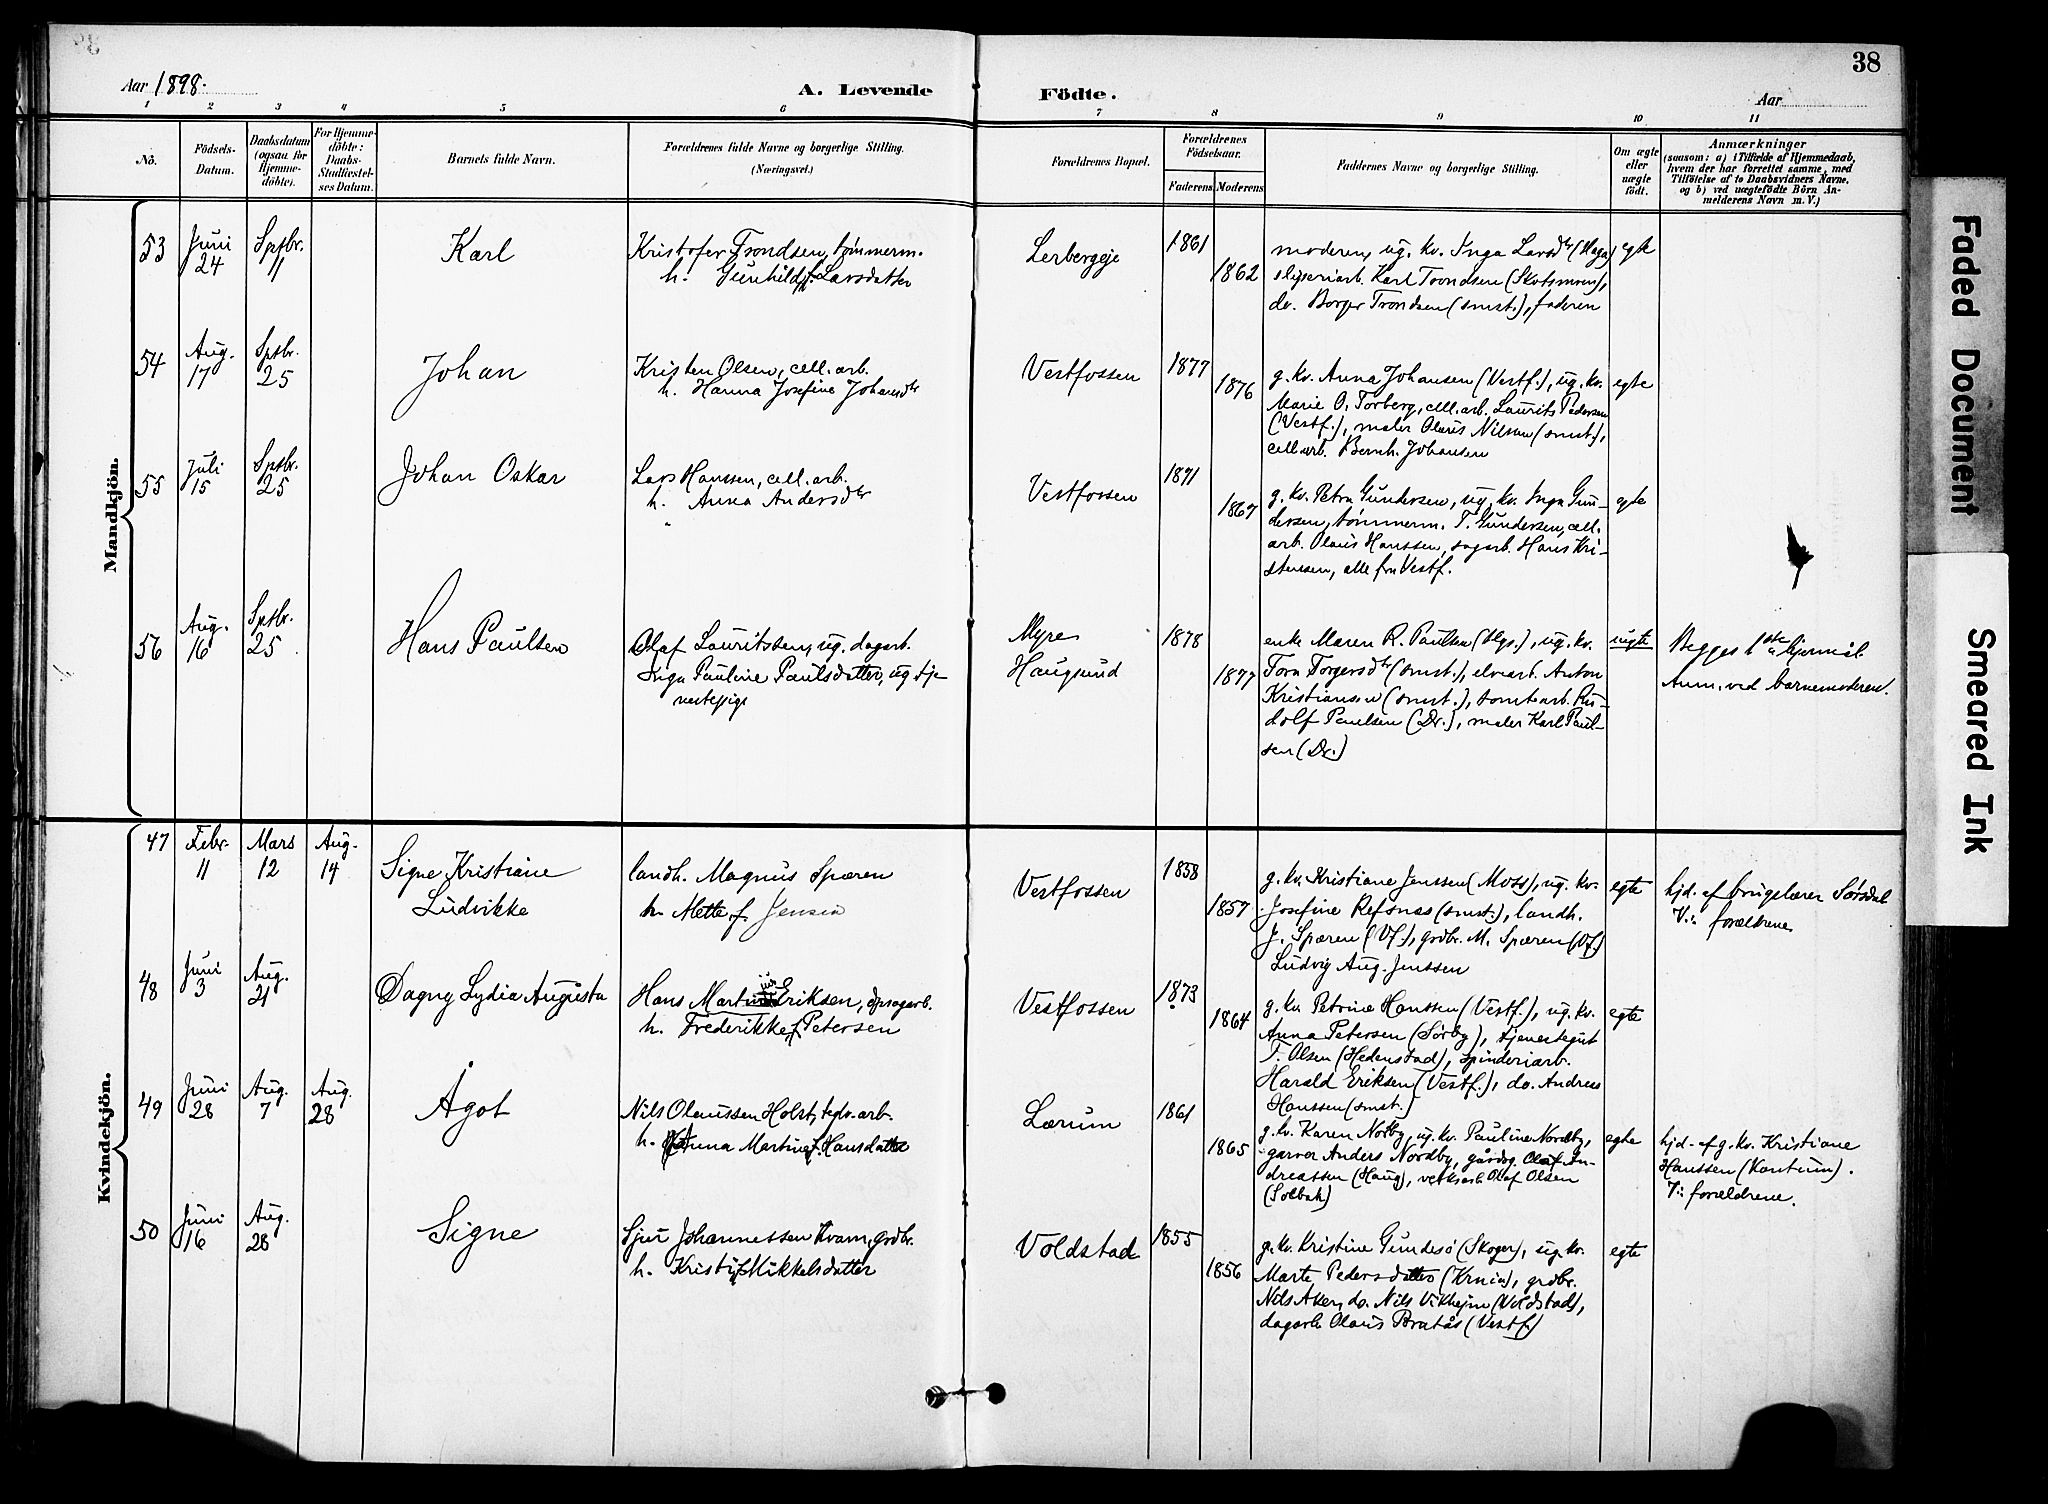 Aar 1898.
A. Levende
Födte.
Aar
38
1 2 3 4 5 6 7 8 9 10 11
No.
Födsels-
Datum.
Daabsdatum
(ogsaa for
Hjemme-
döbte).
For Hjemme-
döbte:
Daabs-
Stadfæstel-
ses Datum.
Barnets fulde Navn.
Forældrenes fulde Navne og borgerlige Stilling.
(Næringsvei.)
Forældrenes Bopæl.
Forældrenes
Födselsaar.
Faderens Moderens
Faddernes Navne og borgerlige Stilling.
Om ægte
eller
uægte
födt.
Anmærkninger
(saasom: a) i Tilfælde af Hjemmedaab,
hvem der har forrettet samme, med
Tilföielse af to Daabsvidners Navne.
og b) ved uægtefödte Börn An-
melderens Navn m. V.)
Mandkjön.
53
Juni
24
Sptbr.
11
Karl
Kristofer Trondsen, tømmerm.
h. Gunhild f. Larsdatter
Lerbergeje
1861
1862
moderen, ug. kv. Inga Larsdtr (Haga)
sliperiarb. Karl Trondsen (Skotsmoen),
do. Borger Trondsen (smst.), faderen
egte
54
Aug.
17
Sptbr.
25
Johan
Kristen Olsen, cell. arb.
h. Hanna Josefine Johansdtr
Vestfossen
1877
1876
g. kv. Anna Johansen (Vestf.), ug. kv.
Marie O. Torberg, cell. arb. Laurits Pedersen
(Vestf.), maler Olaus Nilsen (smst.),
cell. arb. Bernh. Johansen
egte
55
Juli
15
Sptbr.
25
Johan Oskar
Lars Hanssen, cell. arb.
h. Anna Andersdtr
Vestfossen
1871
1867
g. kv. Petra Gundersen, ug. kv. Inga Gun-
dersen, tømmerm. T. Gundersen, cell.
arb. Olaus Hanssen, sagarb. Hans Kri-
stensen, alle fra Vestf.
egte
56
Aug.
16
Sptbr.
25
Hans Paulsen
Olaf Lauritssen, ug. dagarb.
Inga Pauline Paulsdatter, ug tje-
nestepige
Myre
Haugsund
1878
1877
enke Maren R. Paulsen (Hgs.), ug. kv.
Tora Torgersdtr (smst.), elvearb. Anton
Kristiansen (smst.), tomtearb. Ru-
dolf Paulsen (Dr.), maler Karl Paul-
sen (Dr.)
uegte
Begges 1ste lejermål.
Anm. ved barnemoderen.
Kvindekjön.
47
Febr.
11
Mars
12
Aug.
14
Signe Kristiane
Ludvikke
landh. Magnus Spæren
h. Mette f. Jensen
Vestfossen
1858
1857
g. kv. Kristiane Jenssen (Moss), ug. kv.
Josefine Refsnes (smst.), landh.
J. Spæren (Vf.), grdbr. M. Spæren (Vf.)
Ludvig Aug. Jenssen
egte
hjd. af brugslærer Sørsdal
V.: forældrene
48
Juni
3
Aug.
21
Dagny Lydia Augusta
Hans Martinius Eriksen, spsagarb.
h. Frederikke f. Petersen
Vestfossen
1873
1864
g. kv. Petrine Hanssen (Vestf.), ug. kv.
Anna Petersen (Sørby), tjenestegut
T. Olsen (Hedenstad), spinderiarb.
Harald Eriksen (Vestf.), do. Andreas
Hanssen (smst.)
egte
49
Juni
28
Aug.
7
Aug.
28
Ågot
Nils Olaussen Holst, teglv. arb.
h. Anna Martine f. Hansdatter
Lærum
1861
1865
g. kv. Karen Notby, ug. kv. Pauline Nordby,
garver Anders Nordby, gårdsg. Olaf An-
dreassen (Haug), verksarb. Olaf Olsen
(Solbak)
egte
hjd. af g. kv. Kristiane
Hanssen (Kontum).
V.: forældrene.
50
Juni
16
Aug.
28
Signe
Sjur Johannessen Kvam, grdbr.
h. Kristi f. Mikkelsdatter
Voldstad
1855
1856
g. kv. Kristine Gundesø (Skoger), ug. kv.
Marte Pedersdatter (Krnia), grdbr.
Nils Aker, do. Nils Vikhejm (Voldstad),
dagarb. Olaus Bratås (Vestf.)
egte
Faded Document
Smeared Ink